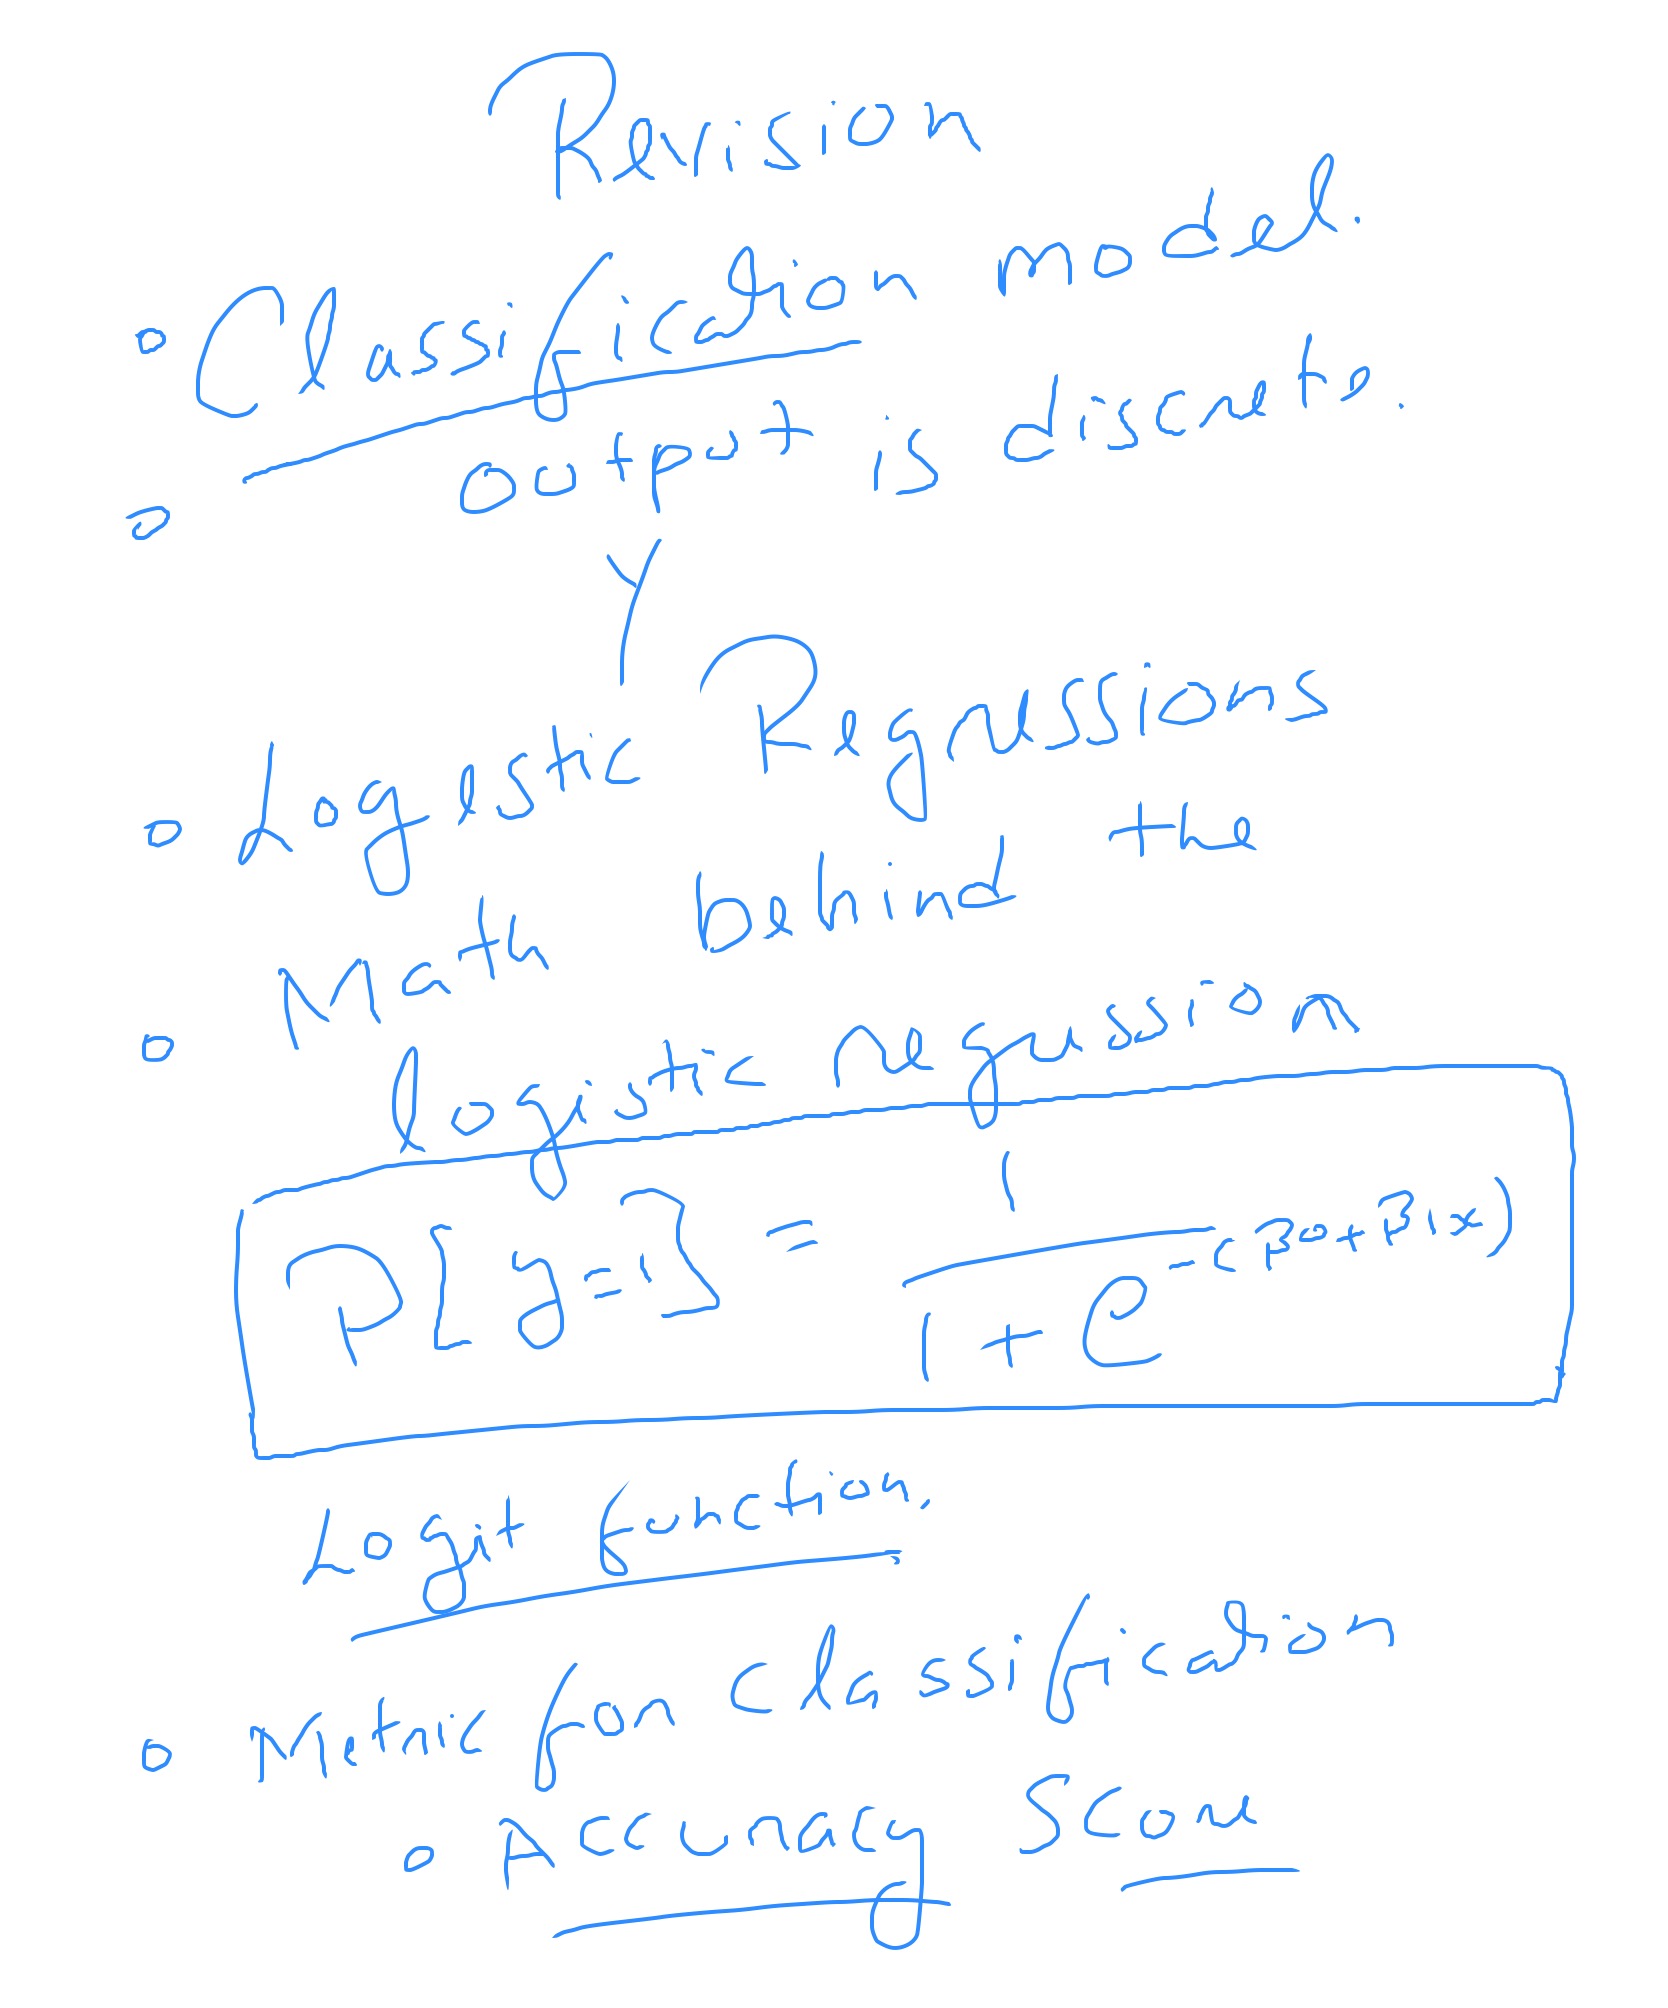 Revision
° Classification model.
° output is discrete.
Y
° Logestic Regressions
° Math behind the
logistic regression
P[y=1] = 1 / 1 + e^-(β0+β1x)
Logit function.
° Metric for Classification
° Accuracy Score